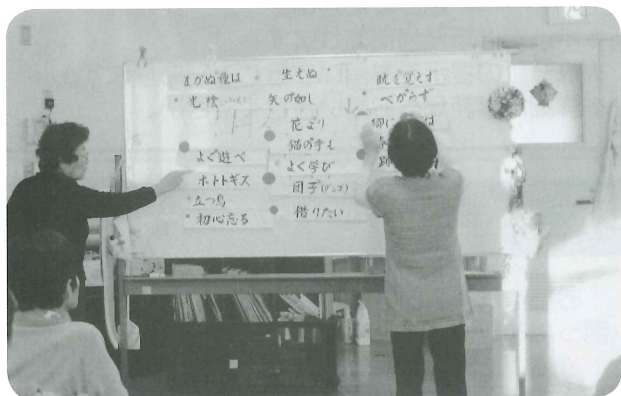 まかぬ種は
生えぬ
光陰
矢の如し
べからず
花より
猫の手も
よく遊べ
よく学び
ホトトギス
団子(ダンゴ)
立つ鳥
初心忘る
借りたい